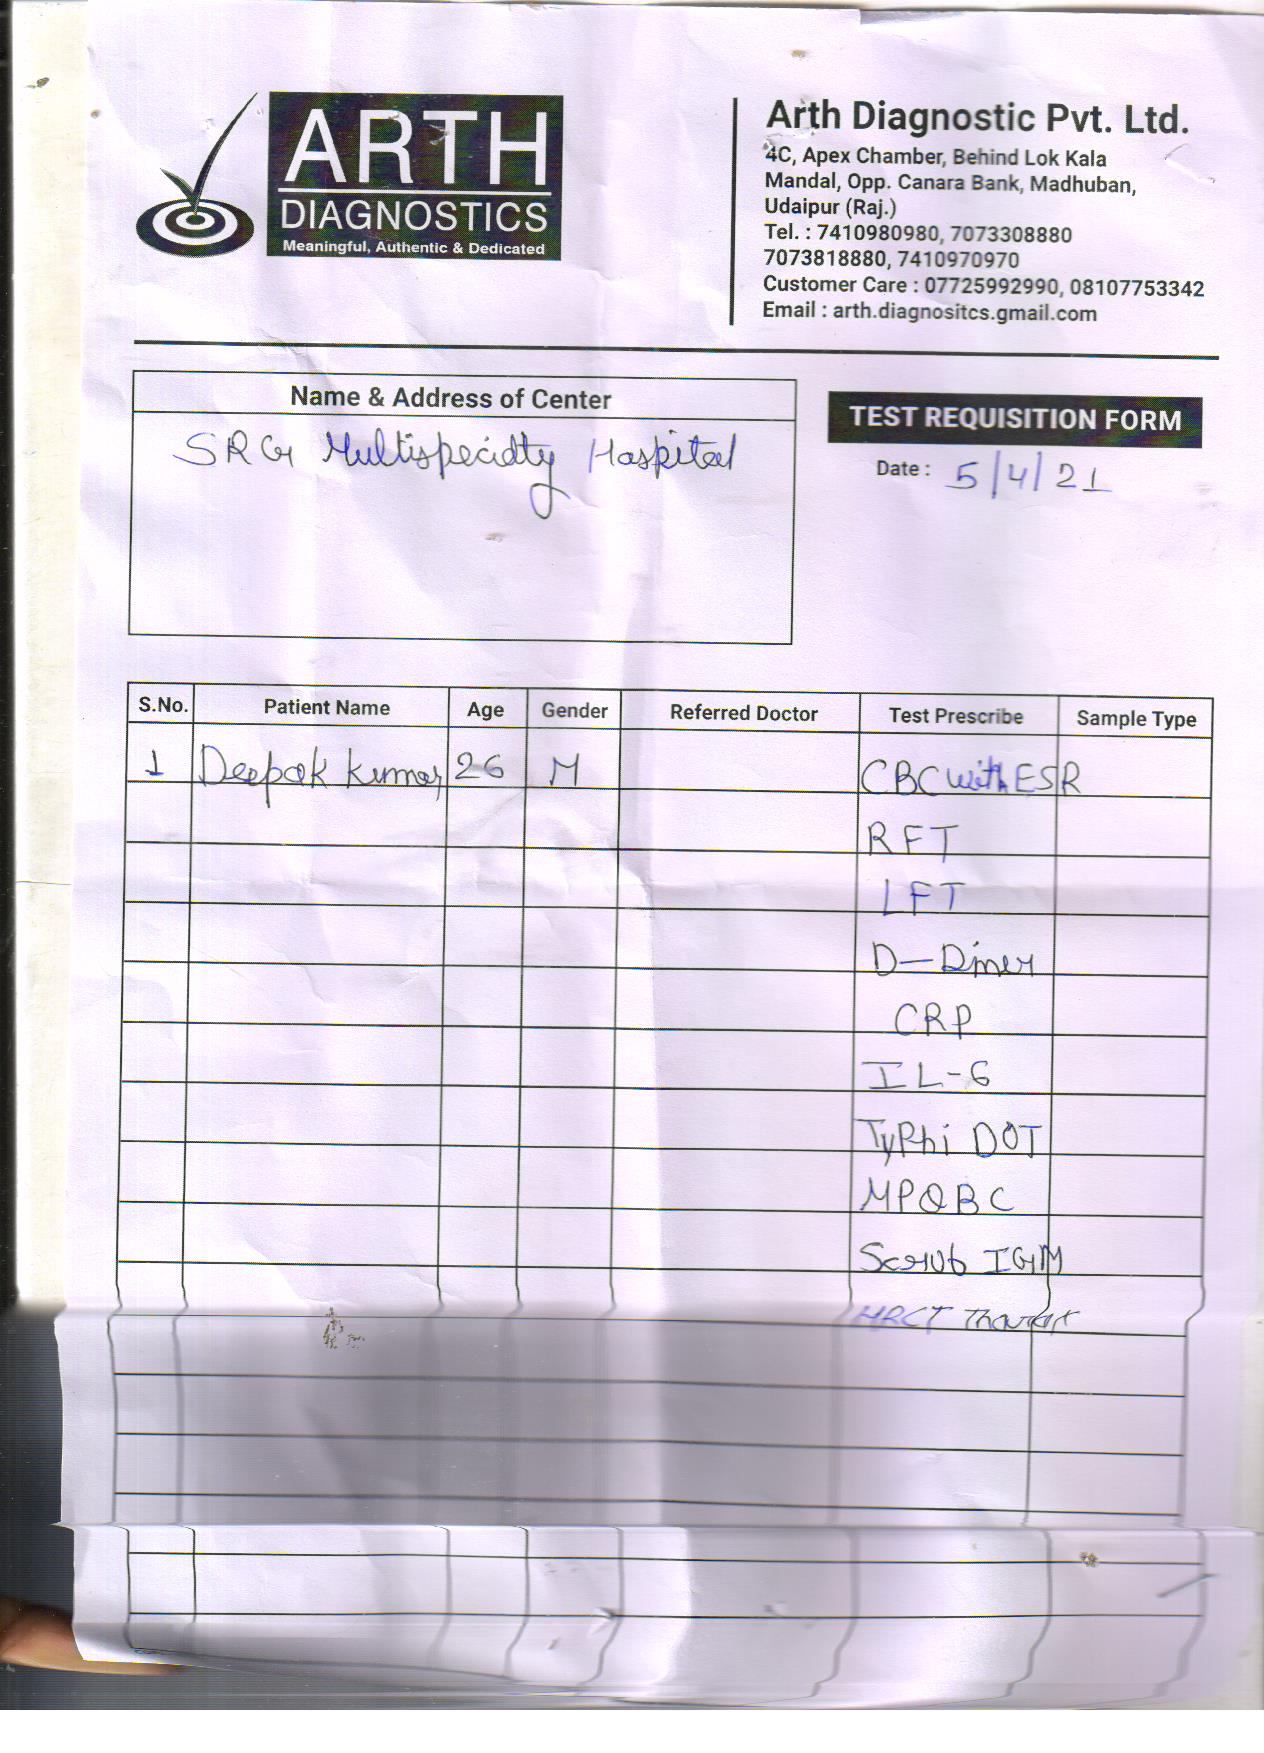 ARTH
DIAGNOSTICS
Meaningful, Authentic & Dedicated
Arth Diagnostic Pvt. Ltd.
4C, Apex Chamber, Behind Lok Kala
Mandal, Opp. Canara Bank, Madhuban,
Udaipur (Raj.)
Tel. : 7410980980, 7073308880
7073818880, 7410970970
Customer Care : 07725992990, 08107753342
Email : arth.diagnositcs.gmail.com
Name & Address of Center
SRG Multispecialty Hospital
TEST REQUISITION FORM
Date : 5/4/21
S.No. Patient Name Age Gender Referred Doctor Test Prescribe Sample Type
1 Deepak Kumar 26 M CBC with ESR
RFT
LFT
D-Dimer
CRP
IL-6
TyPhi DOT
MPQBC
Scrub IGM
HRCT